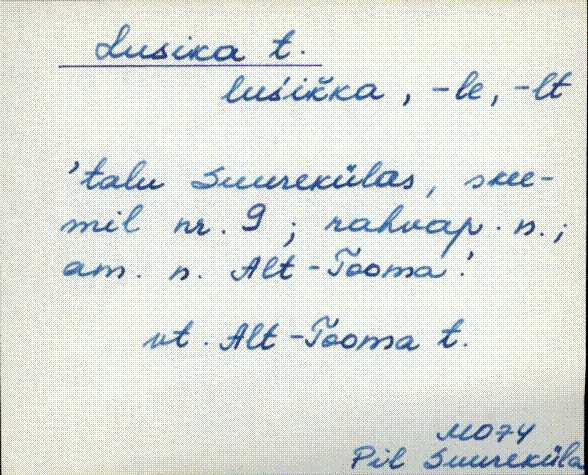 Lusika t.
luśikka, -le, -lt
'talu Suurekülas, skee-
mil nr. 9; rahvap. n.;
am. n. Alt-Tooma.'
vt. Alt-Tooma t.
MO74
Pil Suureküla